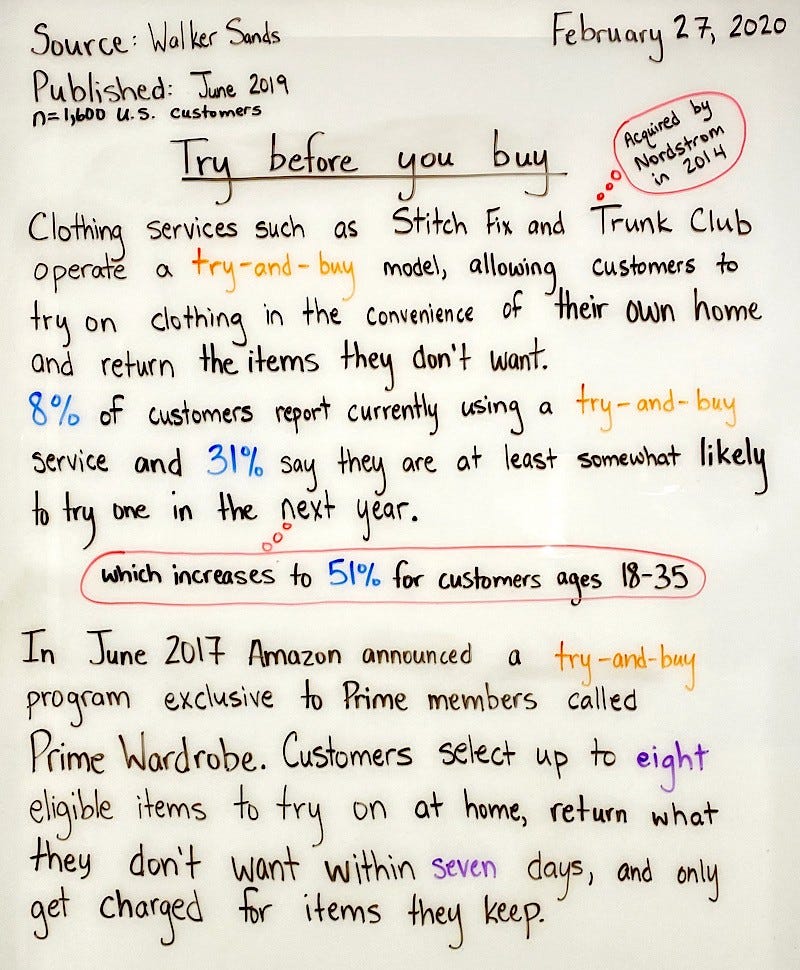 Source: Walker Sands
February 27, 2020
Published: June 2019
n=1,600 U.S. customers
Try before you buy
Acquired by
Nordstrom
in 2014
Clothing services such as Stitch Fix and Trunk Club
operate a try-and-buy model, allowing customers to
try on clothing in the convenience of their own home
and return the items they don't want.
8% of customers report currently using a try-and-buy
service and 31% say they are at least somewhat likely
to try one in the next year.
which increases to 51% for customers ages 18-35
In June 2017 Amazon announced a try-and-buy
program exclusive to Prime members called
Prime Wardrobe. Customers select up to eight
eligible items to try on at home, return what
they don't want within seven days, and only
get charged for items they keep.